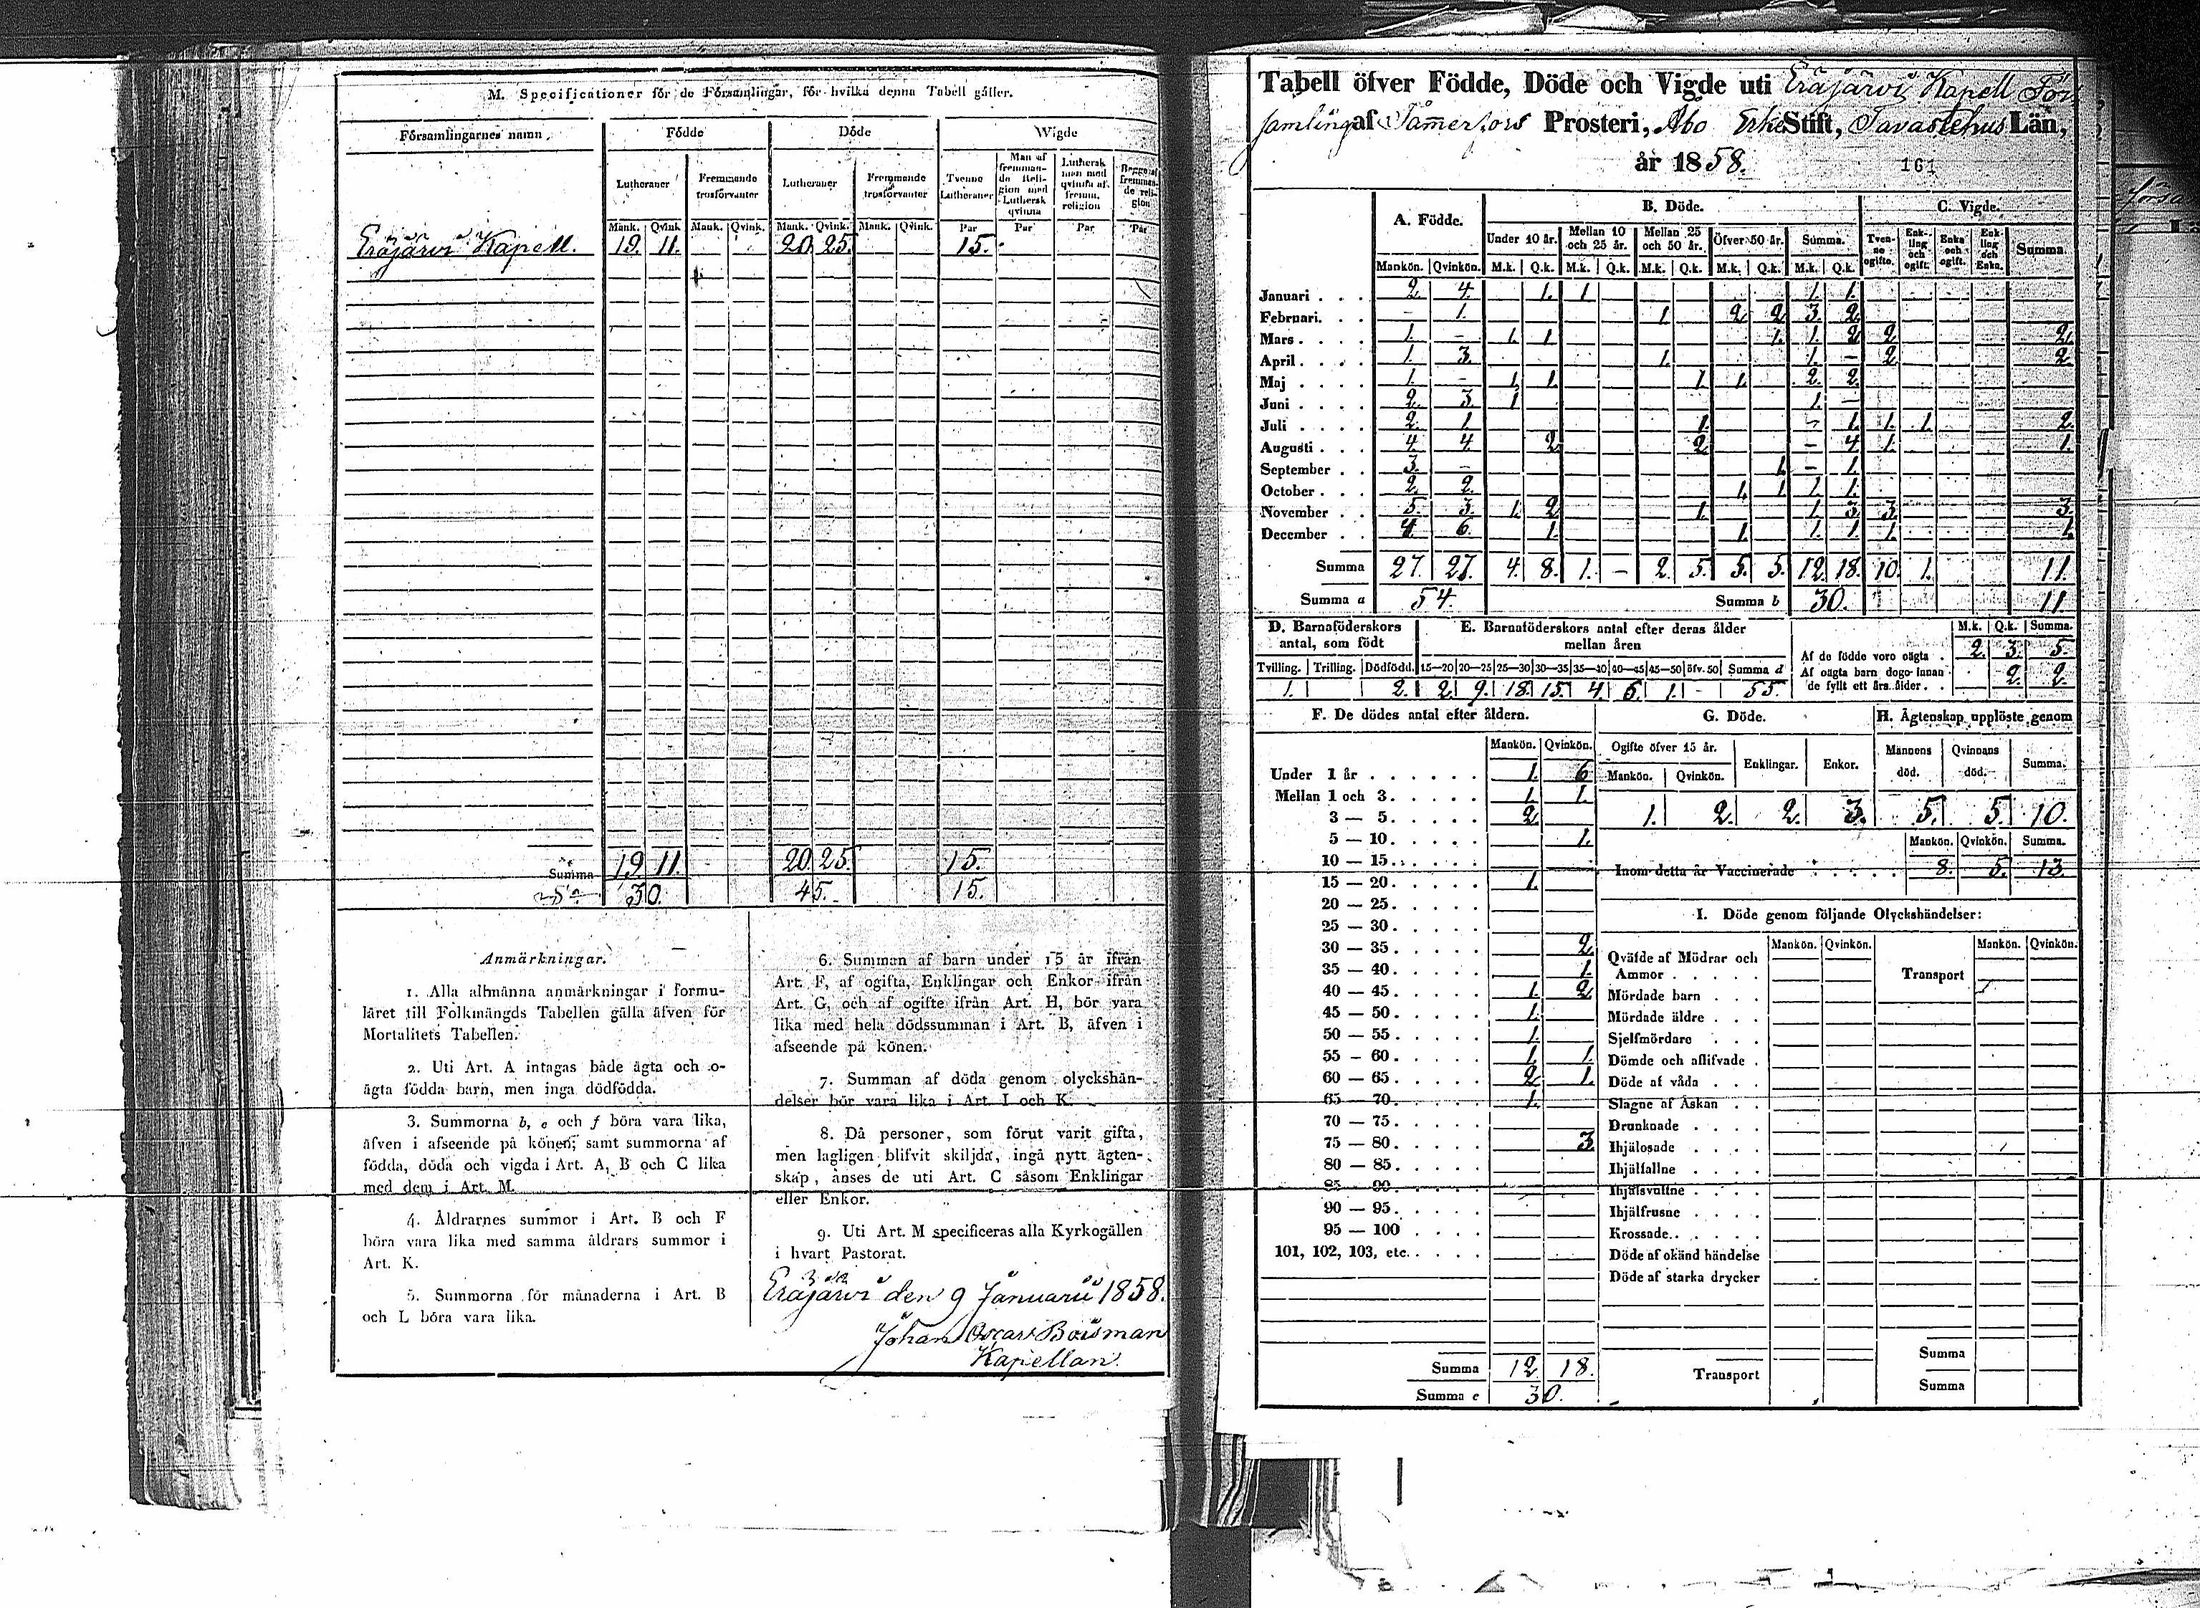 M. Specificationer för de Församlingar, för hvilka denna Tabell gäller.
Församlingarnes namn. Födde Döde Wigde
Lutheraner Fremmande trosförvanter Lutheraner Fremmande trosförvanter Tvenne Lutheraner Man af fremmande Religion med Luthersk qvinna Luthersk man med qvinna af fremm. religion Begge af fremmande religion
Mank. Qvink Mank. Qvink. Mank. Qvink. Mank. Qvink. Par Par Par Par
Eräjärvi Kapell. 19. 11. 20. 25. 15.
Summa 19. 11. 20. 25. 15.
30. 45. 15.
Anmärkningar.
1. Alla allmänna anmärkningar i formu-
läret till Folkmängds Tabellen gälla äfven för
Mortalitets Tabellen.
2. Uti Art. A intagas både ägta och o-
ägta födda barn, men inga dödfödda.
3. Summorna b, c och f böra vara lika,
äfven i afseende på könen; samt summorna af
födda, döda och vigda i Art. A, B och C lika
med dem i Art. M.
4. Åldrarnes summor i Art. B och F
böra vara lika med samma åldrars summor i
Art. K.
5. Summorna för månaderna i Art. B
och L böra vara lika.
6. Summan af barn under 15 år ifrån
Art. F, af ogifta, Enklingar och Enkor ifrån
Art. G, och af ogifte ifrån Art. H, bör vara
lika med hela dödssumman i Art. B, äfven i
afseende på könen.
7. Summan af döda genom olyckshän-
delser bör vara lika i Art. I och K.
8. Då personer, som förut varit gifta,
men lagligen blifvit skiljda, ingå nytt ägten-
skap, anses de uti Art. C såsom Enklingar
eller Enkor.
9. Uti Art. M specificeras alla Kyrkogällen
i hvart Pastorat.
Eräjärvi den 9 Januarii 1858.
Johan Oscar Boisman
Kapellan.
Tabell öfver Födde, Döde och Vigde uti Eräjärvi Kapell För
samling af Tammerfors Prosteri, Åbo Erke Stift, Tavastehus Län,
år 1858. 161
A. Födde. B. Döde. C. Vigde.
Under 10 år. Mellan 10 och 25 år. Mellan 25 och 50 år. Öfver 50 år. Summa. Tvenne ogifte. Enkling och ogift. Enka och ogift. Enkling och Enka. Summa.
Mankön. Qvinkön. M.k. Q.k. M.k. Q.k. M.k. Q.k. M.k. Q.k. M.k. Q.k.
Januari . . . 2. 4. 1. 1. 1. 1.
Februari. . . - 1. 1. 2. 2. 3. 2.
Mars . . . . 1. - 1. 1. 1. 1. 2. 2. 2.
April . . . . 1. 3. 1. 1. - 2. 2.
Maj . . . . 1. - 1. 1. 1. 1. 2. 2.
Juni . . . . 2. 3. 1. 1. -
Juli . . . . 2. 1. 1. - 1. 1. 1. 2.
Augusti . . . 4. 4. 2. 2. - 4. 1. 1.
September . . 3. - 1. - 1.
October . . . 2. 2. 1. 1. 1. 1.
November . . 5. 3. 1. 2. 1. 1. 3. 3. 3.
December . . 4. 6. 1. 1. 1. 1. 1. 1.
Summa 27. 27. 4. 8. 1. - 2. 5. 5. 5. 12. 18. 10. 1. 11.
Summa a 54. Summa b 30. 11.
D. Barnaföderskors antal, som födt
E. Barnaföderskors antal efter deras ålder mellan åren
Tvilling. Trilling. Dödfödd. 15—20 20—25 25—30 30—35 35—40 40—45 45—50 öfv. 50 Summa d
1. 2. 2. 9. 18. 15. 4. 6. 1. - 55.
M.k. Q.k. Summa.
Af de födde voro oägta . 2. 3. 5.
Af oägta barn dogo innan de fyllt ett års ålder . . 2. 2.
F. De dödes antal efter åldern.
Mankön. Qvinkön.
Under 1 år . . . . . . 1. 6.
Mellan 1 och 3. . . . . 1. 1.
3 — 5. . . . . 2.
5 — 10. . . . . 1.
10 — 15. . . . .
15 — 20. . . . . 1.
20 — 25. . . . .
25 — 30. . . . .
30 — 35. . . . . 2.
35 — 40. . . . . 1.
40 — 45. . . . . 1. 2.
45 — 50. . . . . 1.
50 — 55. . . . . 1.
55 — 60. . . . . 1. 1.
60 — 65. . . . . 2. 1.
65 — 70. . . . . 1.
70 — 75. . . . .
75 — 80. . . . . 3.
80 — 85. . . . .
85 — 90. . . . .
90 — 95. . . . .
95 — 100 . . . .
101, 102, 103, etc. . . . .
Summa 12. 18.
Summa c 30.
G. Döde.
Ogifte öfver 15 år. Enklingar. Enkor.
Mankön. Qvinkön.
1. 2. 2. 3.
H. Ägtenskap upplöste genom
Mannens död. Qvinnans död. Summa.
5. 5. 10.
Mankön. Qvinkön. Summa.
Inom detta år Vaccinerade . . . . . 8. 5. 13.
I. Döde genom följande Olyckshändelser:
Mankön. Qvinkön. Mankön. Qvinkön.
Qväfde af Mödrar och
Ammor . . . . . Transport
Mördade barn . . .
Mördade äldre . . .
Sjelfmördare . . .
Dömde och aflifvade .
Döde af våda . . .
Slagne af Åskan . .
Drunknade . . . .
Ihjälosade . . . .
Ihjälfallne . . . .
Ihjälsvultne . . . .
Ihjälfrusne . . . .
Krossade. . . . . .
Döde af okänd händelse
Döde af starka drycker
Transport
Summa
Summa